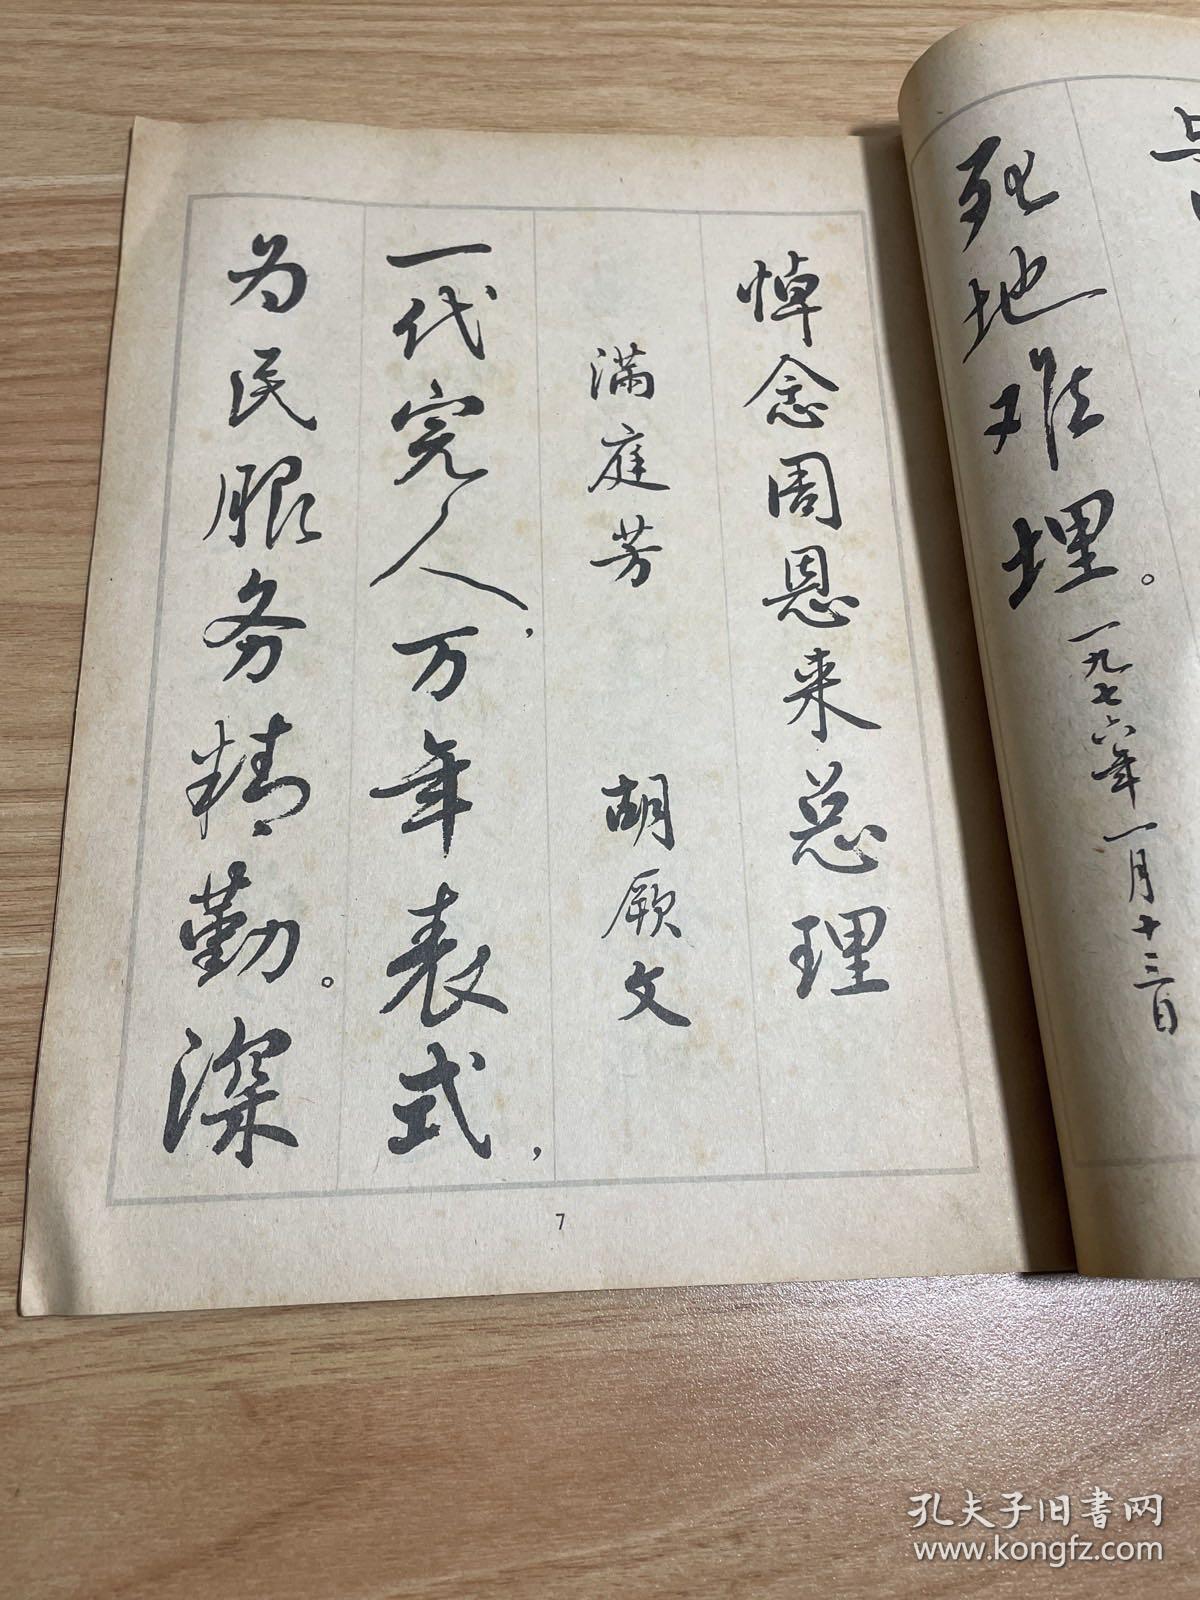 死地难埋。
一九七六年一月十三日
悼念周恩来总理
满庭芳 胡厥文
一代完人，万年表式，
为民服务精勤。深
7
孔夫子旧书网
www.kongfz.com